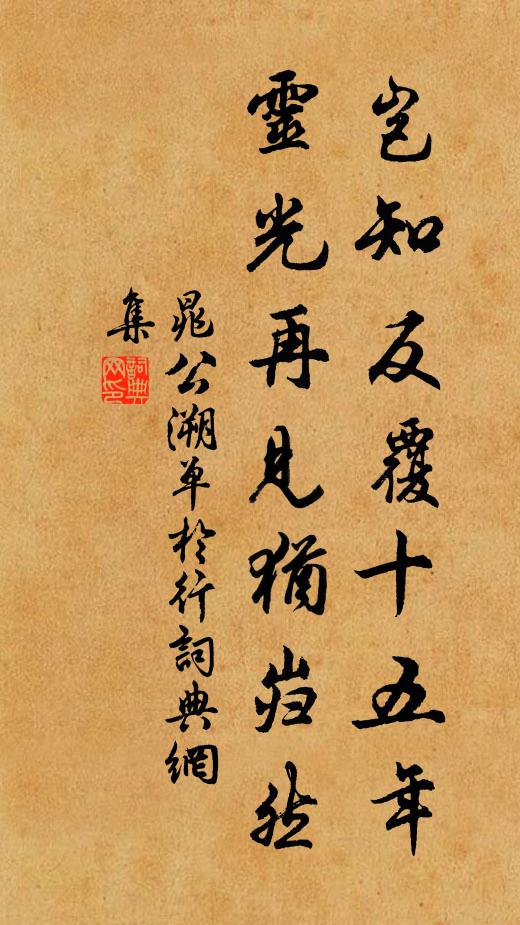 岂知反覆十五年
靈光再見猶岿然
晁公溯单於行詞典網
集
詞典网印